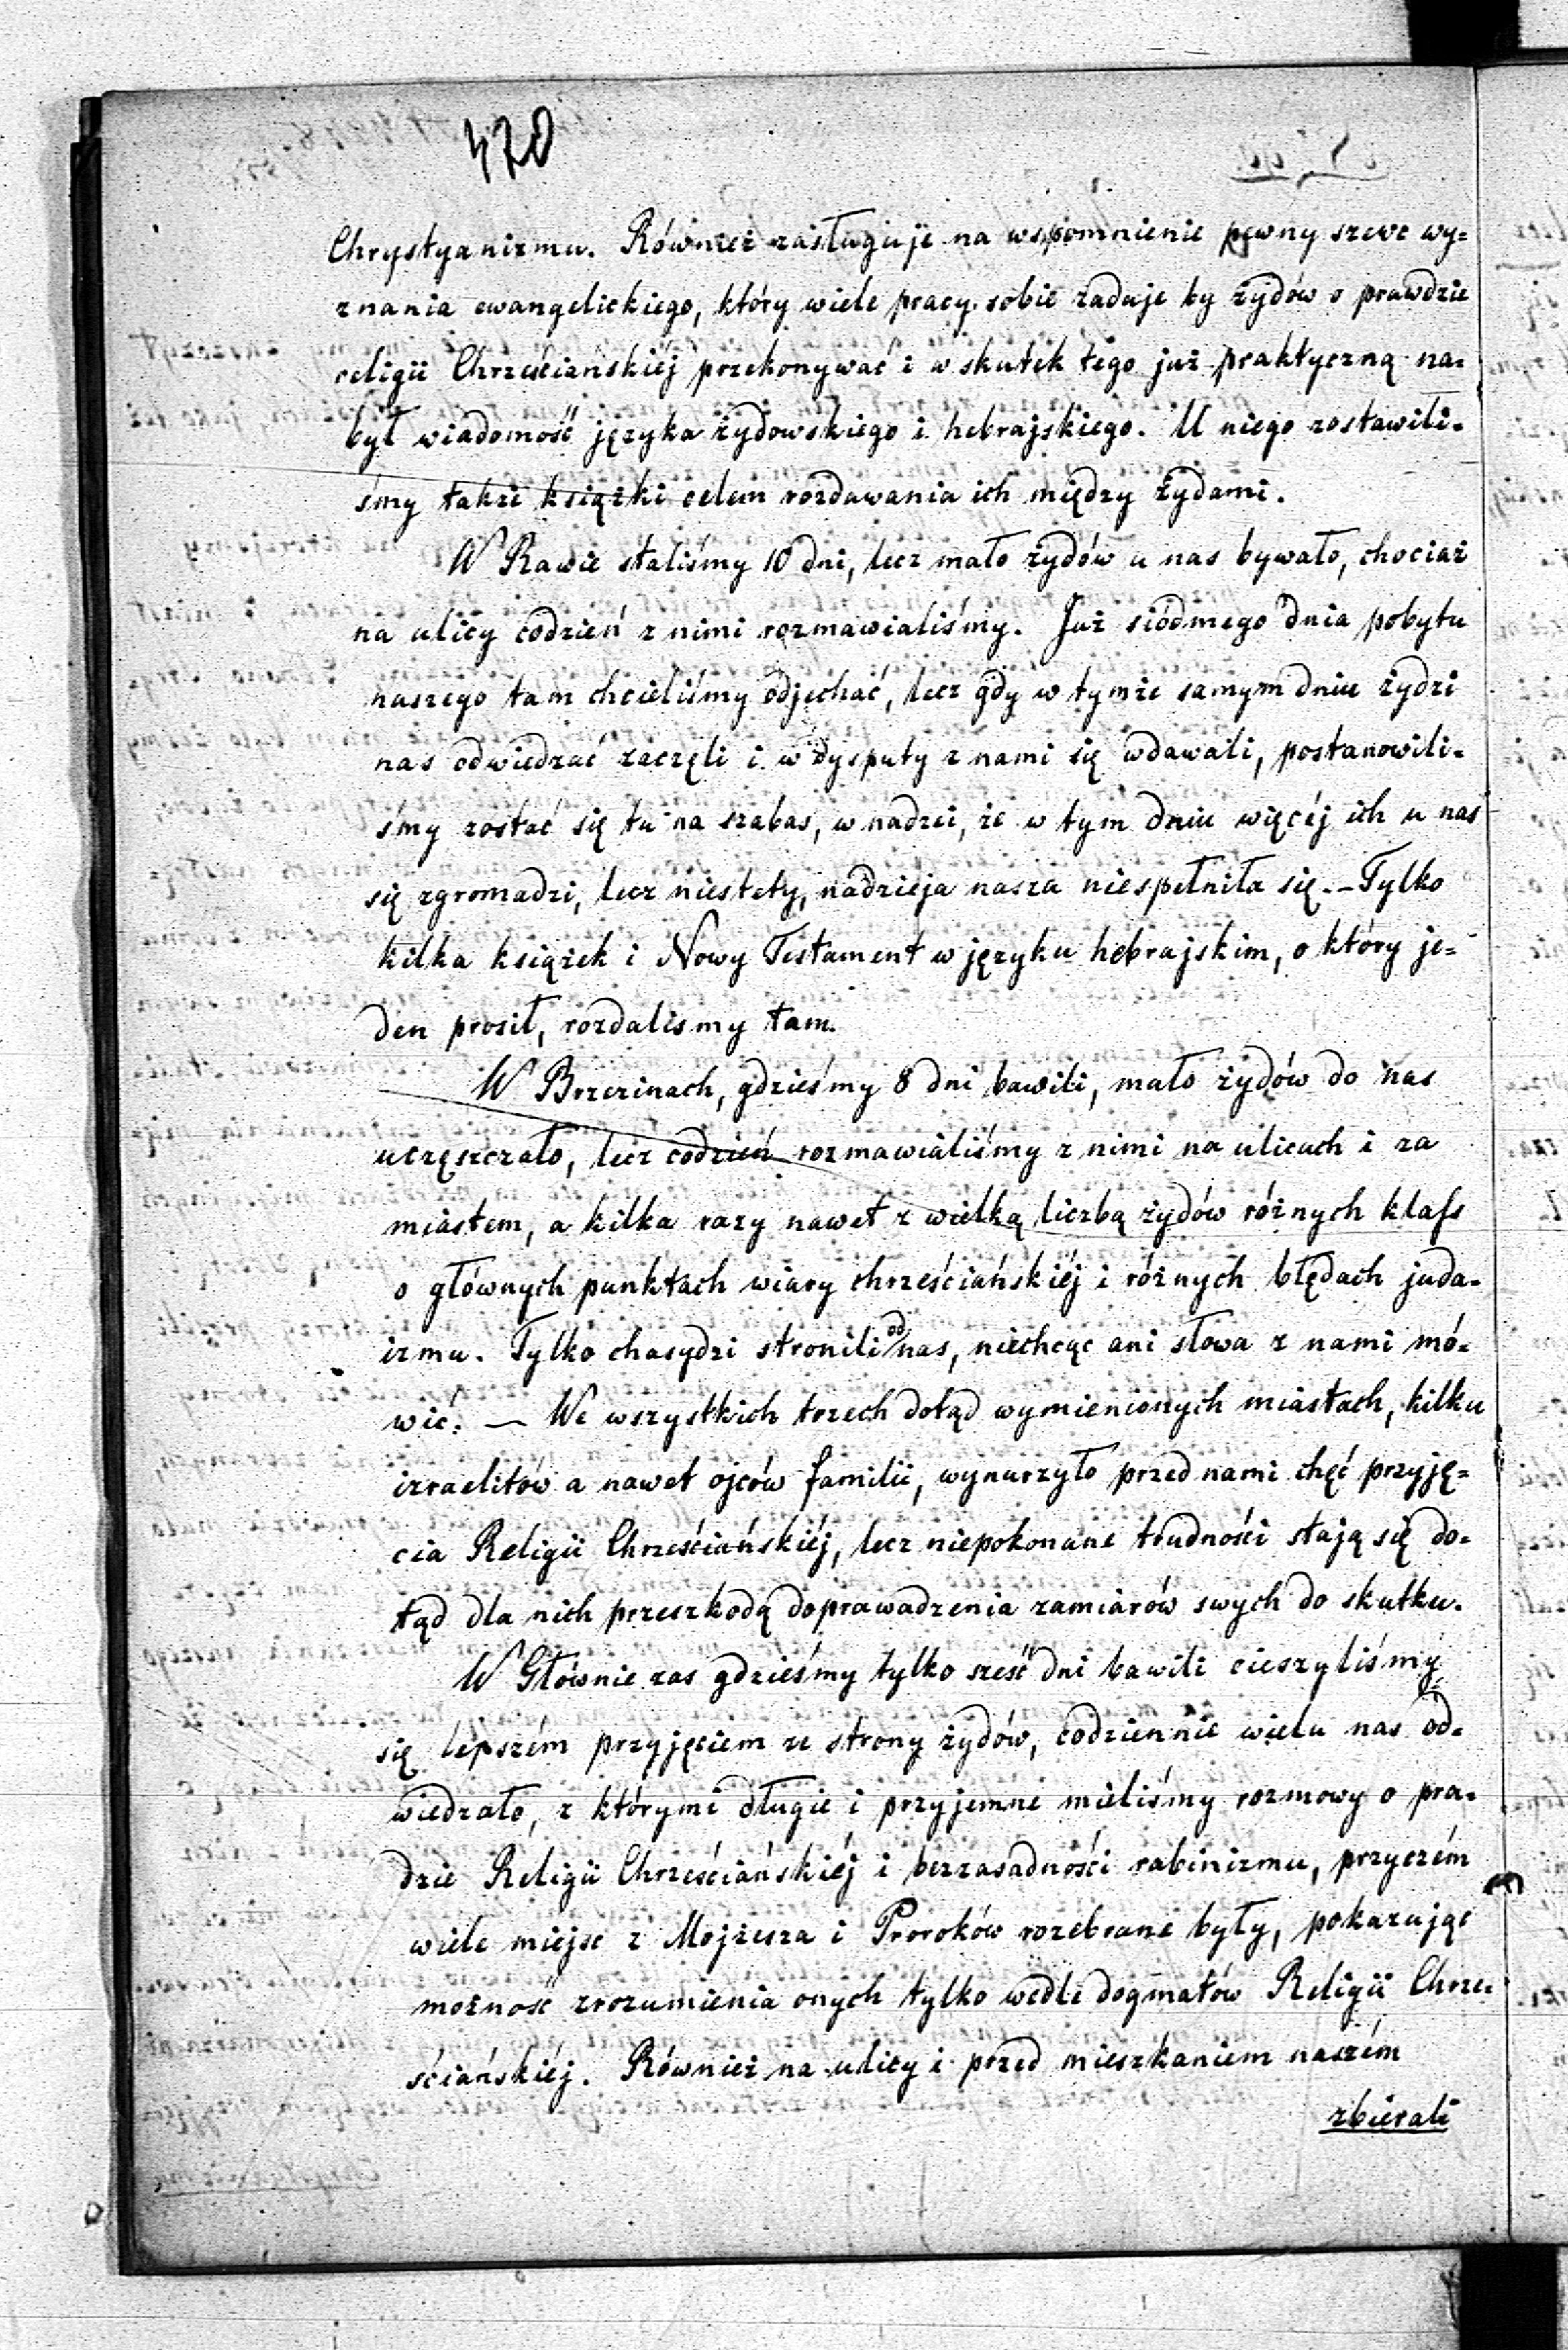 470
Chrystyanizmu. Również zasługuje na wspomnienie pewny szewc wy=
znania ewangelickiego, który wiele pracy sobie zaduje by żydów o prawdzie
religii Chrześciańskiéj przekonywać i w skutek tego już praktyczną na=
był wiadomość języka żydowskiego i hebrajskiego. U niego zostawili=
śmy także książki celem rozdawania ich między żydami.
W Rawie staliśmy 10 dni, lecz mało żydów u nas bywało, chociaż
na ulicy codzień z nimi rozmawialiśmy. Już siódmego dnia pobytu
naszego tam chcieliśmy odjechać, lecz gdy w tymże samym dniu żydzi
nas odwiedzać zaczęli i w dysputy z nami się wdawali, postanowili=
śmy zostać się tu na szabas, w nadzei, że w tym dniu więcéj ich u nas
się zgromadzi, lecz niestety, nadzieja nasza niespełniła się. – Tylko
kilka książek i Nowy Testament w języku hebrajskim, o który je=
den prosił, rozdalismy tam.
W Brzezinach, gdzieśmy 8 dni bawili, mało żydów do nas
uczęszczało, lecz codzień rozmawialiśmy z nimi na ulicach i za
miastem, a kilka razy nawet z wielką liczbą żydów różnych klass
o głównych punktach wiary chrześciańskiéj i różnych błędach juda=
izmu. Tylko chasydzi stronili od nas, niechcąc ani słowa z nami mó=
wić. — We wszystkich trzech dotąd wymienionych miastach, kilku
izraelitów a nawet ojców familii, wynurzyło przed nami chęć przyję=
cia Religii Chrześciańskiéj, lecz niepokonane trudności stają się do=
tąd dla nich przeszkodą doprawadzenia zamiarów swych do skutku.
W Głównie zas gdzieśmy tylko sześć dni bawili cieszyliśmy
się lepszém przyjęciem ze strony żydów, codziennie wielu nas od=
wiedzało, z którymi długie i przyjemne mieliśmy rozmowy o pra=
dzie Religii Chrześciańskiéj i bezzasadności rabinizmu, przyczém
wiele miejsc z Mojżesza i Proroków rozebrane były, pokazując
możność zrozumienia onych tylko wedle dogmatów Religii Chrze=
ściańskiéj. Również na ulicy i przed mieszkaniem naszém
zbierali